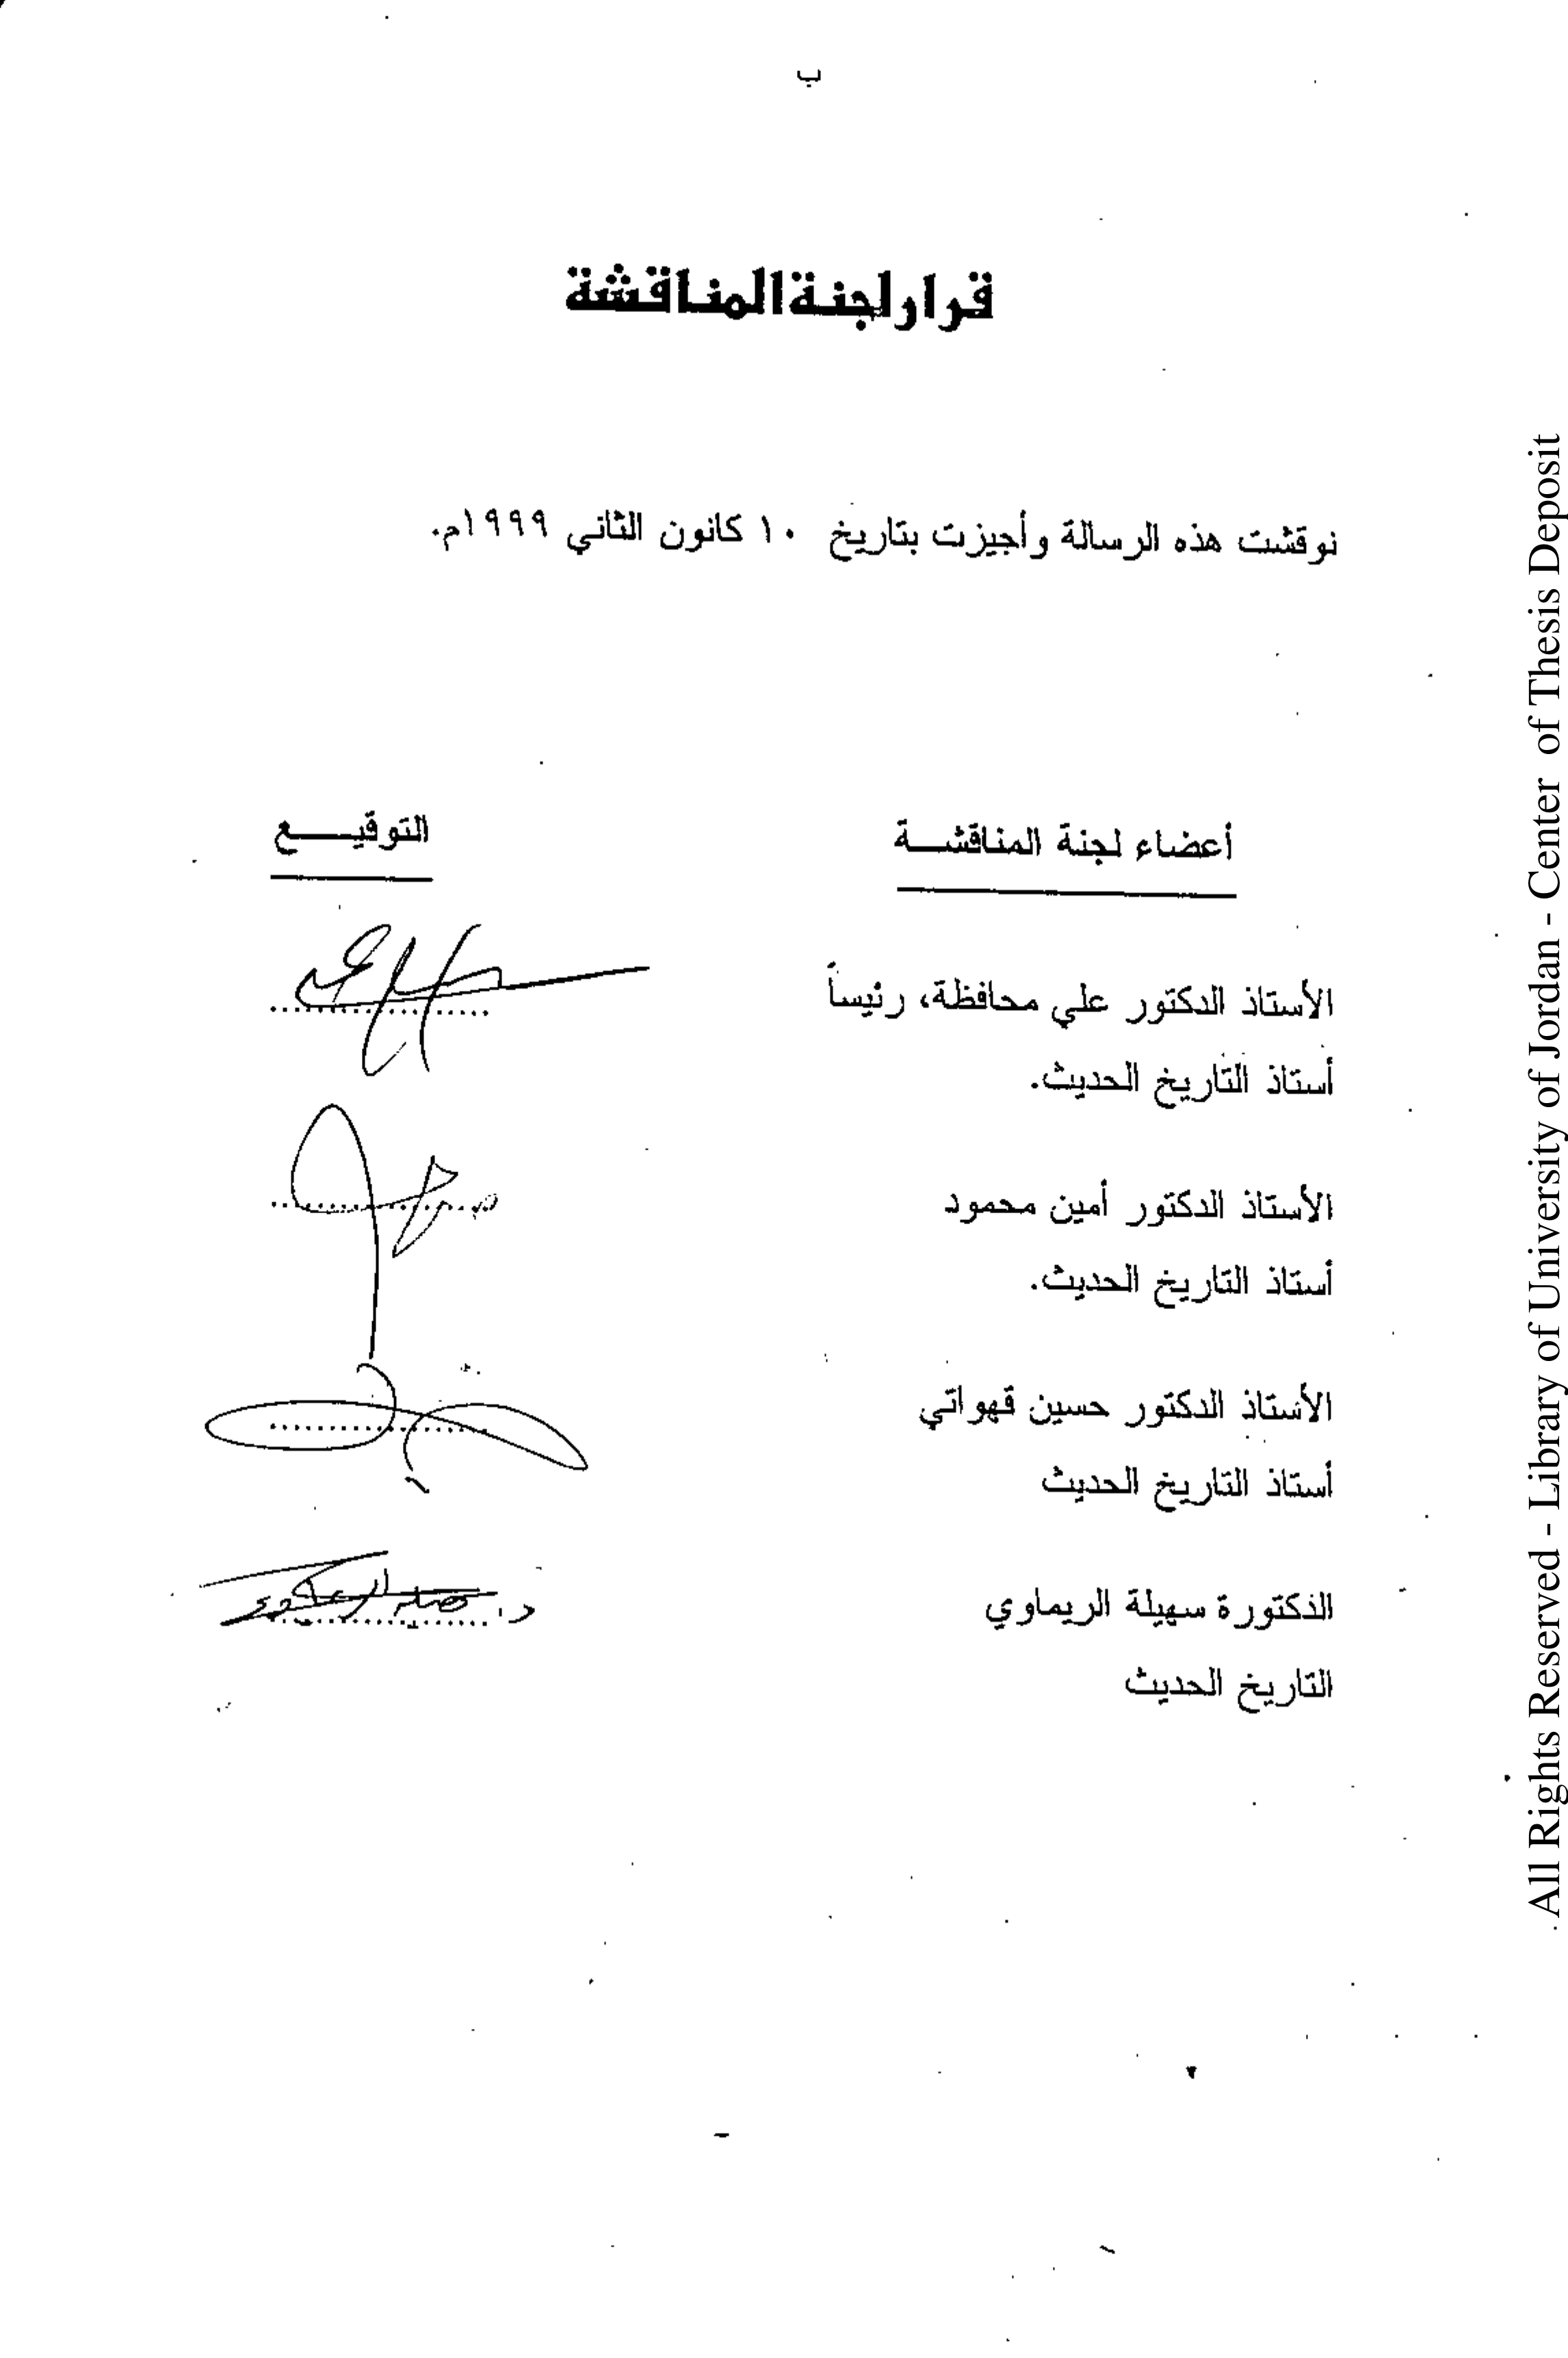 ب
قرار لجنة المناقشة
نوقشت هذه الرسالة وأجيزت بتاريخ ١٠ كانون الثاني ١٩٩٩م.
أعضاء لجنة المناقشـــة التوقيـــــع
الأستاذ الدكتور علي محافظة، رئيساً
أستاذ التاريخ الحديث.
الأستاذ الدكتور أمين محمود
أستاذ التاريخ الحديث.
الأستاذ الدكتور حسين قهواتي
أستاذ التاريخ الحديث
الدكتورة سهيلة الريماوي
التاريخ الحديث
All Rights Reserved - Library of University of Jordan - Center of Thesis Deposit